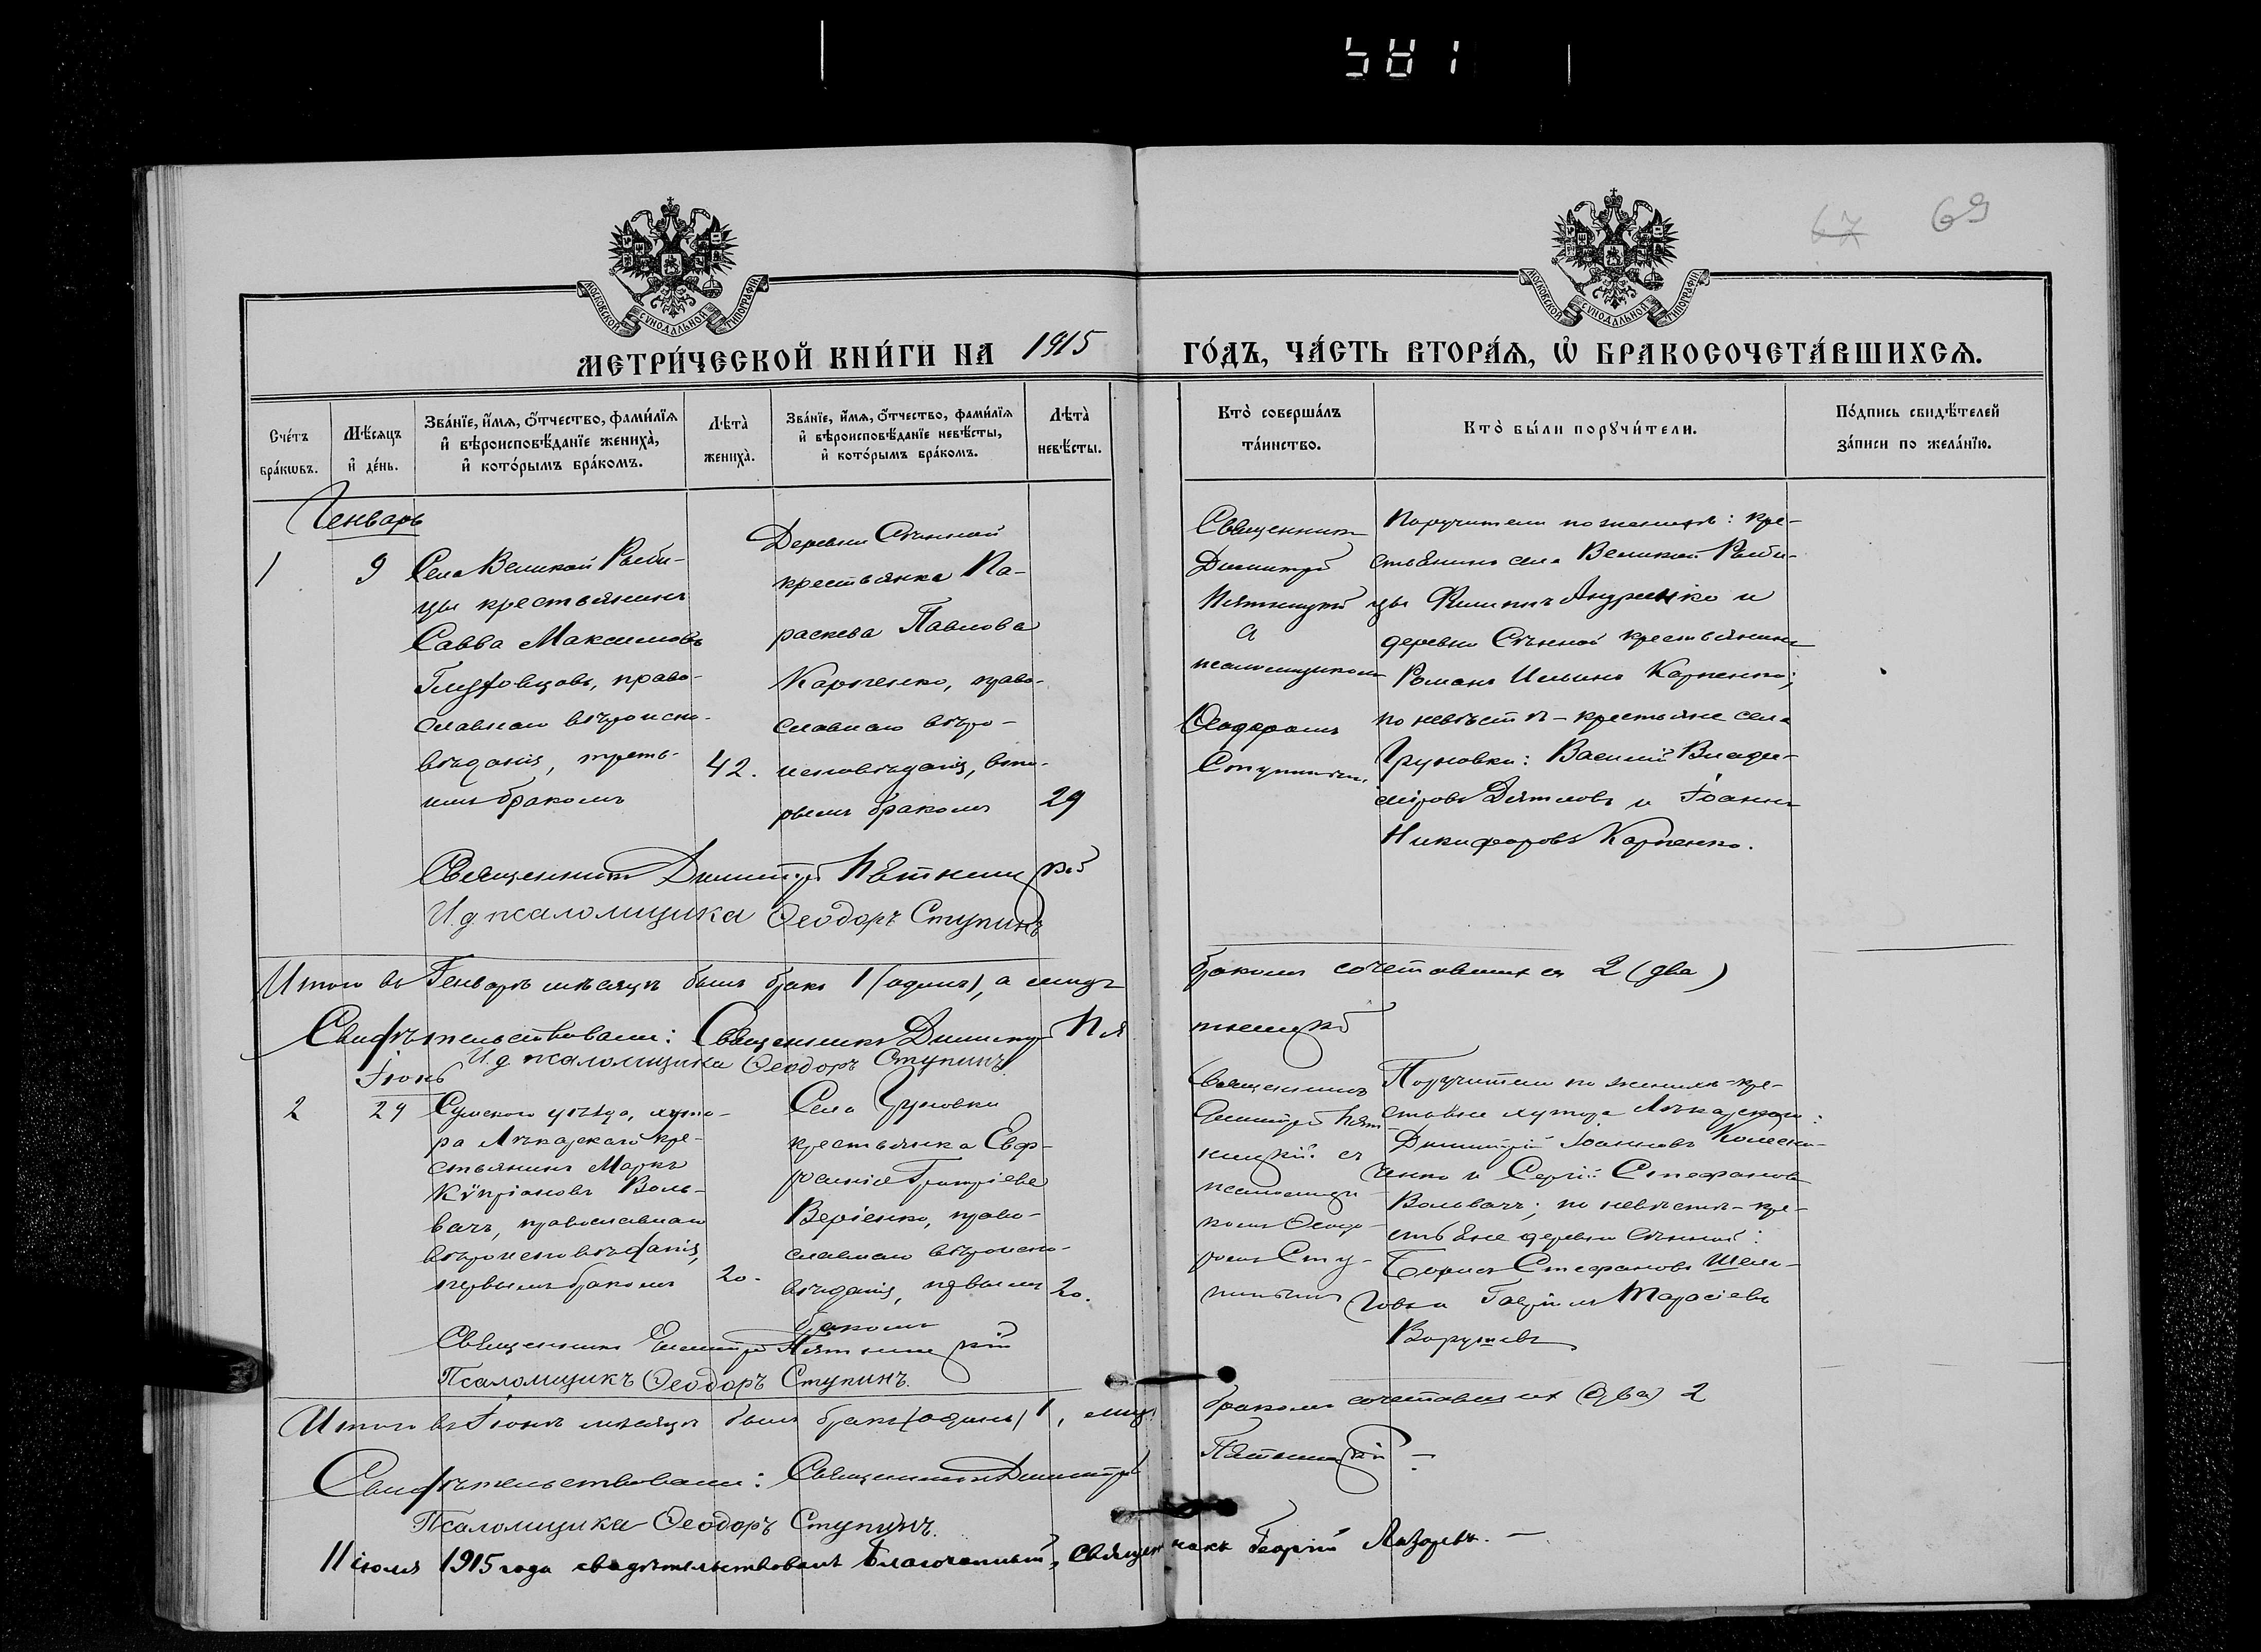 581
67 69
МОСКОВСКОЙ СѴНОДАЛЬНОЙ ТИПОГРАФІИ
МОСКОВСКОЙ СѴНОДАЛЬНОЙ ТИПОГРАФІИ
МЕТРИ́ЧЕСКОЙ КНИ́ГИ НА 1915 ГО́ДЪ, ЧА́СТЬ ВТОРА́Ѧ, Ѡ҆ БРАКОСОЧЕТА́ВШИХСѦ.
Сче́тъ
бра́кѡвъ.
Мѣ́сяцъ
и҆ де́нь.
Зва́нїе, и҆́мѧ, ѻ҆́тчество, фами́лїѧ
и҆ вѣроисповѣ́данїе жениха̀,
и҆ кото́рымъ бра́комъ.
Лѣта̀
жениха̀.
Зва́нїе, и҆́мѧ, ѻ҆́тчество, фами́лїѧ
и҆ вѣроисповѣ́данїе невѣ́сты,
и҆ кото́рымъ бра́комъ.
Лѣта̀
невѣ́сты.
Кто̀ соверша́лъ
та́инство.
Кто̀ бы́ли порꙋчи́тели.
По́дпись свидѣ́телей
за́писи по жела́нїю.
Генварь
1
9
Села Великой Рыби-
цы крестьянинъ
Савва Максимовъ
православнаго вѣроиспо-
вѣданія, треть-
имъ бракомъ
42.
Деревни Стѣнной
крестьянка Па-
раскева Павлова
Карпенко, право-
славнаго вѣро-
исповѣданія, вто-
рымъ бракомъ
29
Священникъ
Димитрій
Пятницкій
съ
псаломщикомъ
Ѳеодоромъ
Ступинымъ.
Поручители по женихѣ: кре-
стьянинъ села Великой Рыби-
цы Филиппъ Андреенко и
деревни Стѣнной крестьянинъ
Романъ Ильинъ Карпенко;
по невѣстѣ - крестьяне села
Груновки: Василій Влади-
міровъ Дятловъ и Іоаннъ
Никифоровъ Карпенко.
Священникъ Димитрій Пятницкій
И.д. псаломщика Ѳеодоръ Ступинъ
Итого въ Генварѣ мѣсяцѣ былъ бракъ 1 (одинъ), а лицъ бракомъ сочетавшихся 2 (два)
Свидѣтельствовали: Священникъ Димитрій Пятницкій
И.д. псаломщика Ѳеодоръ Ступинъ
Іюнь
2
29
Сумскаго уѣзда, хуто-
ра Лѣкарскаго кре-
стьянинъ Маркъ
Кѵпріановъ Воль-
вачъ, православнаго
вѣроисповѣданія,
первымъ бракомъ
20.
Села Груновки
крестьянка Евф-
росинія Григоріева
Веріенко, право-
славнаго вѣроиспо-
вѣданія, первымъ
бракомъ
20.
Священникъ
Димитрій Пят-
ницкій съ
псаломщи-
комъ Ѳеодо-
ромъ Сту-
пинымъ
Поручители по женихѣ - кре-
стьяне хутора Лѣкарскаго:
Димитрій Іоанновъ Колесни-
ченко и Сергій Стефановъ
Вольвачъ; по невѣстѣ - кре-
стьяне деревни Стѣнной:
Борисъ Стефановъ
Гавріилъ Тарасіевъ
Священникъ Димитрій Пятницкій
Псаломщикъ Ѳеодоръ Ступинъ.
Итого въ Іюнѣ мѣсяцѣ былъ бракъ (одинъ) 1, лицъ бракомъ сочетавшихся (два) 2
Свидѣтельствовали: Священникъ Димитрій Пятницкій
Псаломщика Ѳеодоръ Ступинъ.
11 іюля 1915 года свидѣтельствовалъ Благочинный, Священникъ Георгій Лазаревъ.